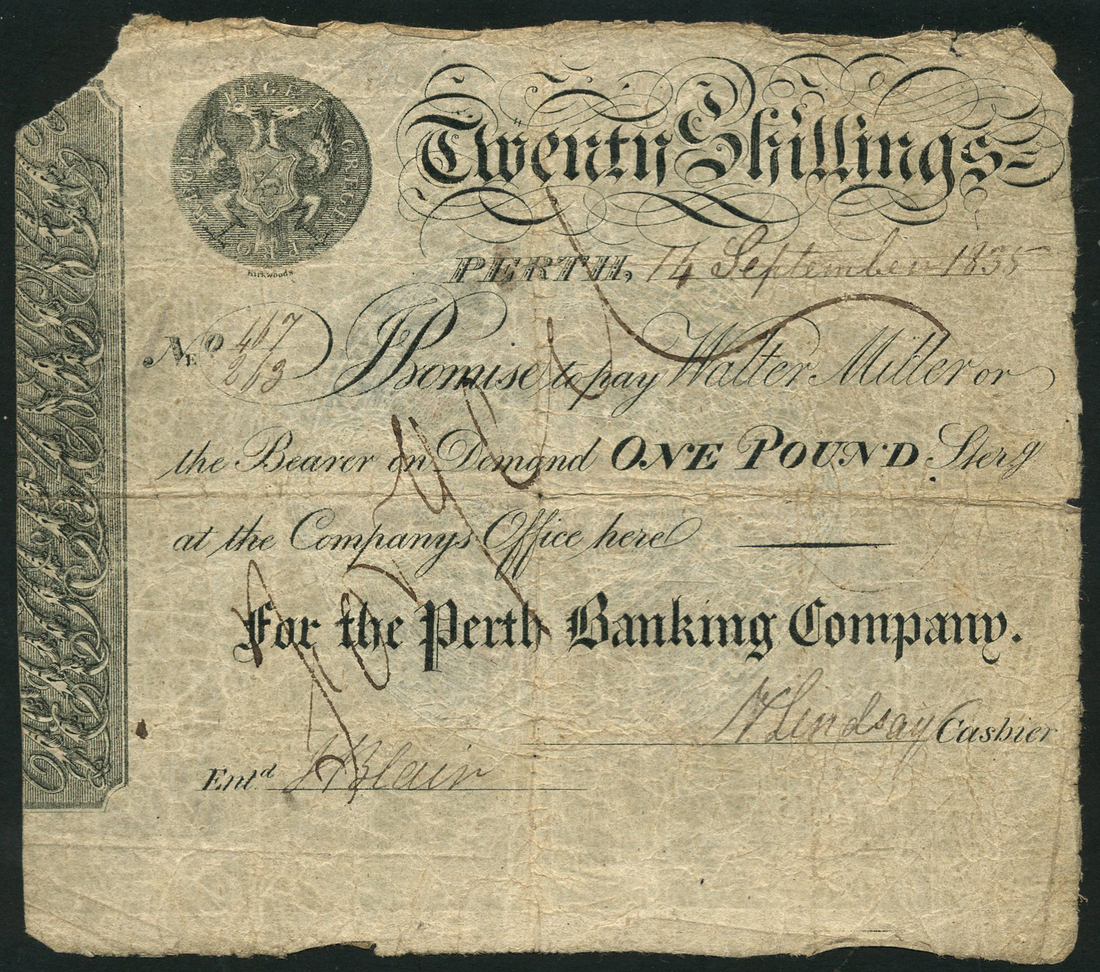 Twenty Shillings
PRO REGE LEGE ET GREGE
Kirkwoods
PERTH, 14 September 1835
No 467
2/3
I Promise to pay Walter Miller or
the Bearer on Demand ONE POUND Sterg
at the Companys Office here
Forged
For the Perth Banking Company.
Lindsay Cashier
Entd Blair